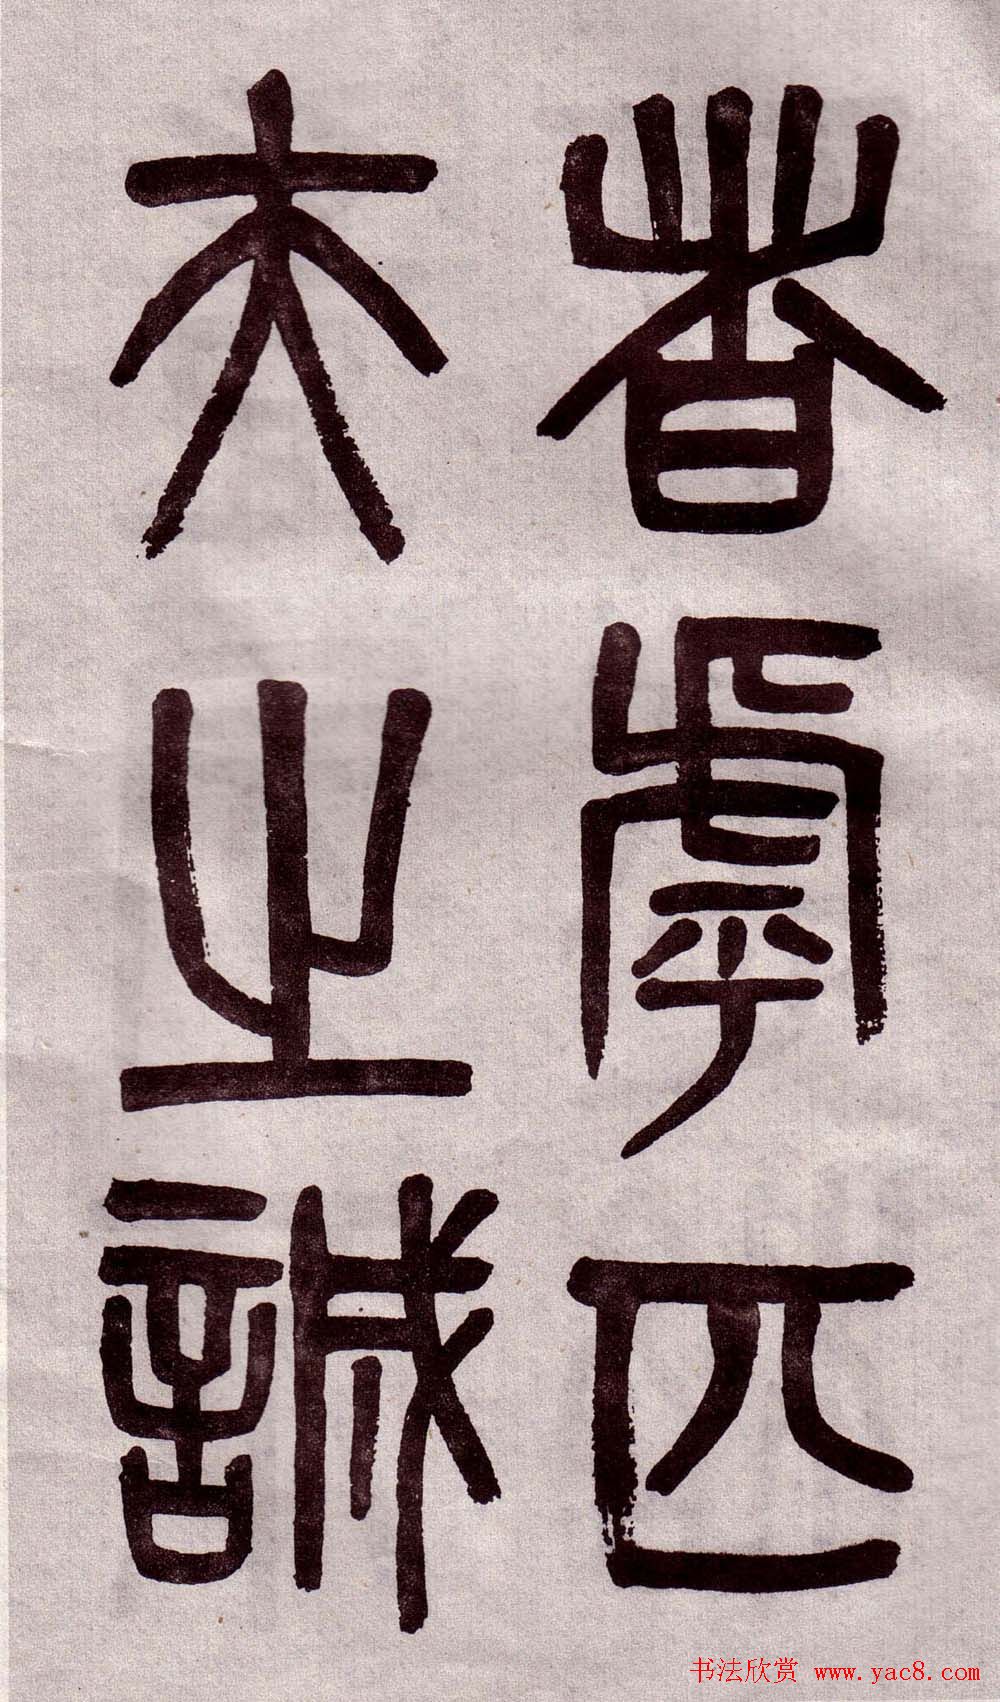 者虖匹
夫之誠
书法欣赏 www.yac8.com